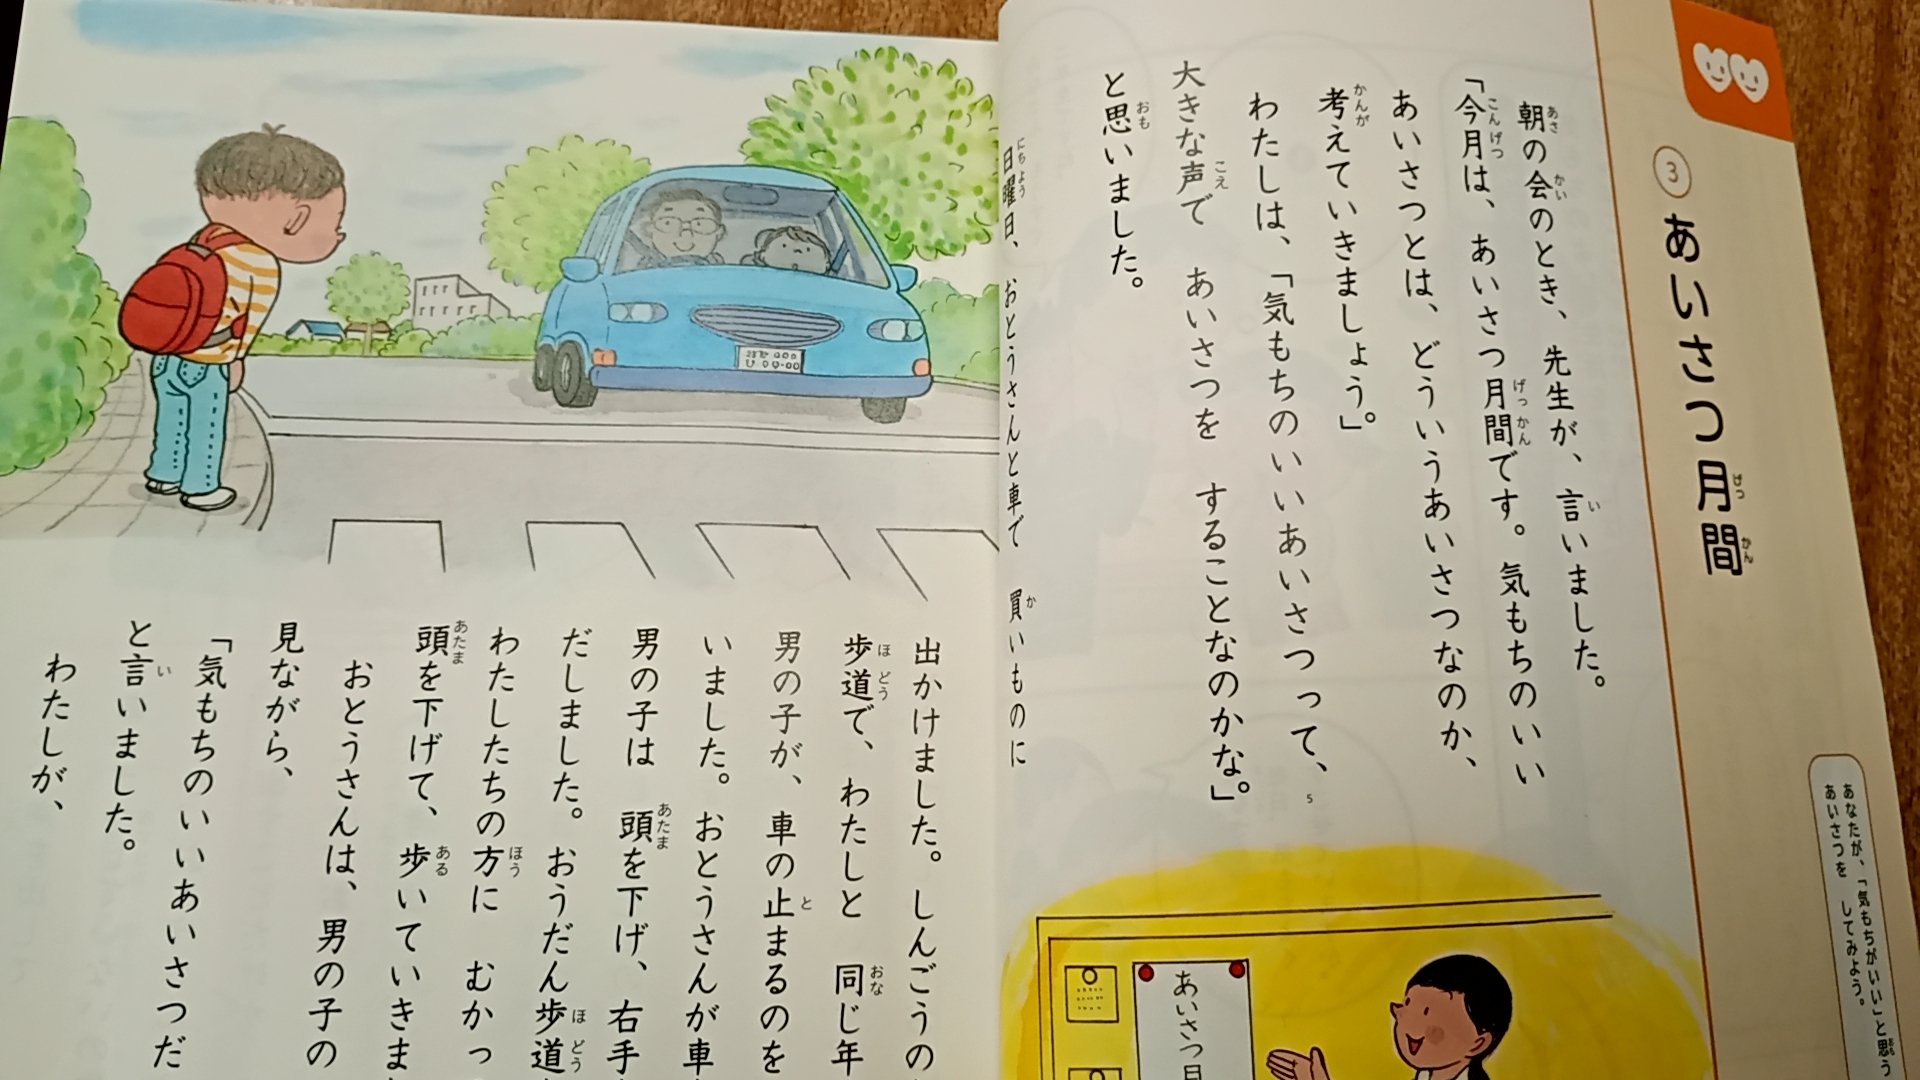 ③ あいさつ月間
朝の会のとき、先生が、言いました。
「今月は、あいさつ月間です。気もちのいい
あいさつとは、どういうあいさつなのか、
考えていきましょう。」
わたしは、「気もちのいいあいさつって、
大きな声で あいさつを することなのかな。」
と思いました。
5
あなたが、「気もちがいい」と思う
あいさつを してみよう。
あいさつ月
日曜日、おとうさんと車で 買いものに
出かけました。しんごうの
歩道で、わたしと 同じ年
男の子が、車の止まるのを
いました。おとうさんが車
男の子は 頭を下げ、右手
だしました。おうだん歩道
わたしたちの方に むかっ
頭を下げて、歩いていきま
おとうさんは、男の子の
見ながら、
「気もちのいいあいさつだ
と言いました。
わたしが、